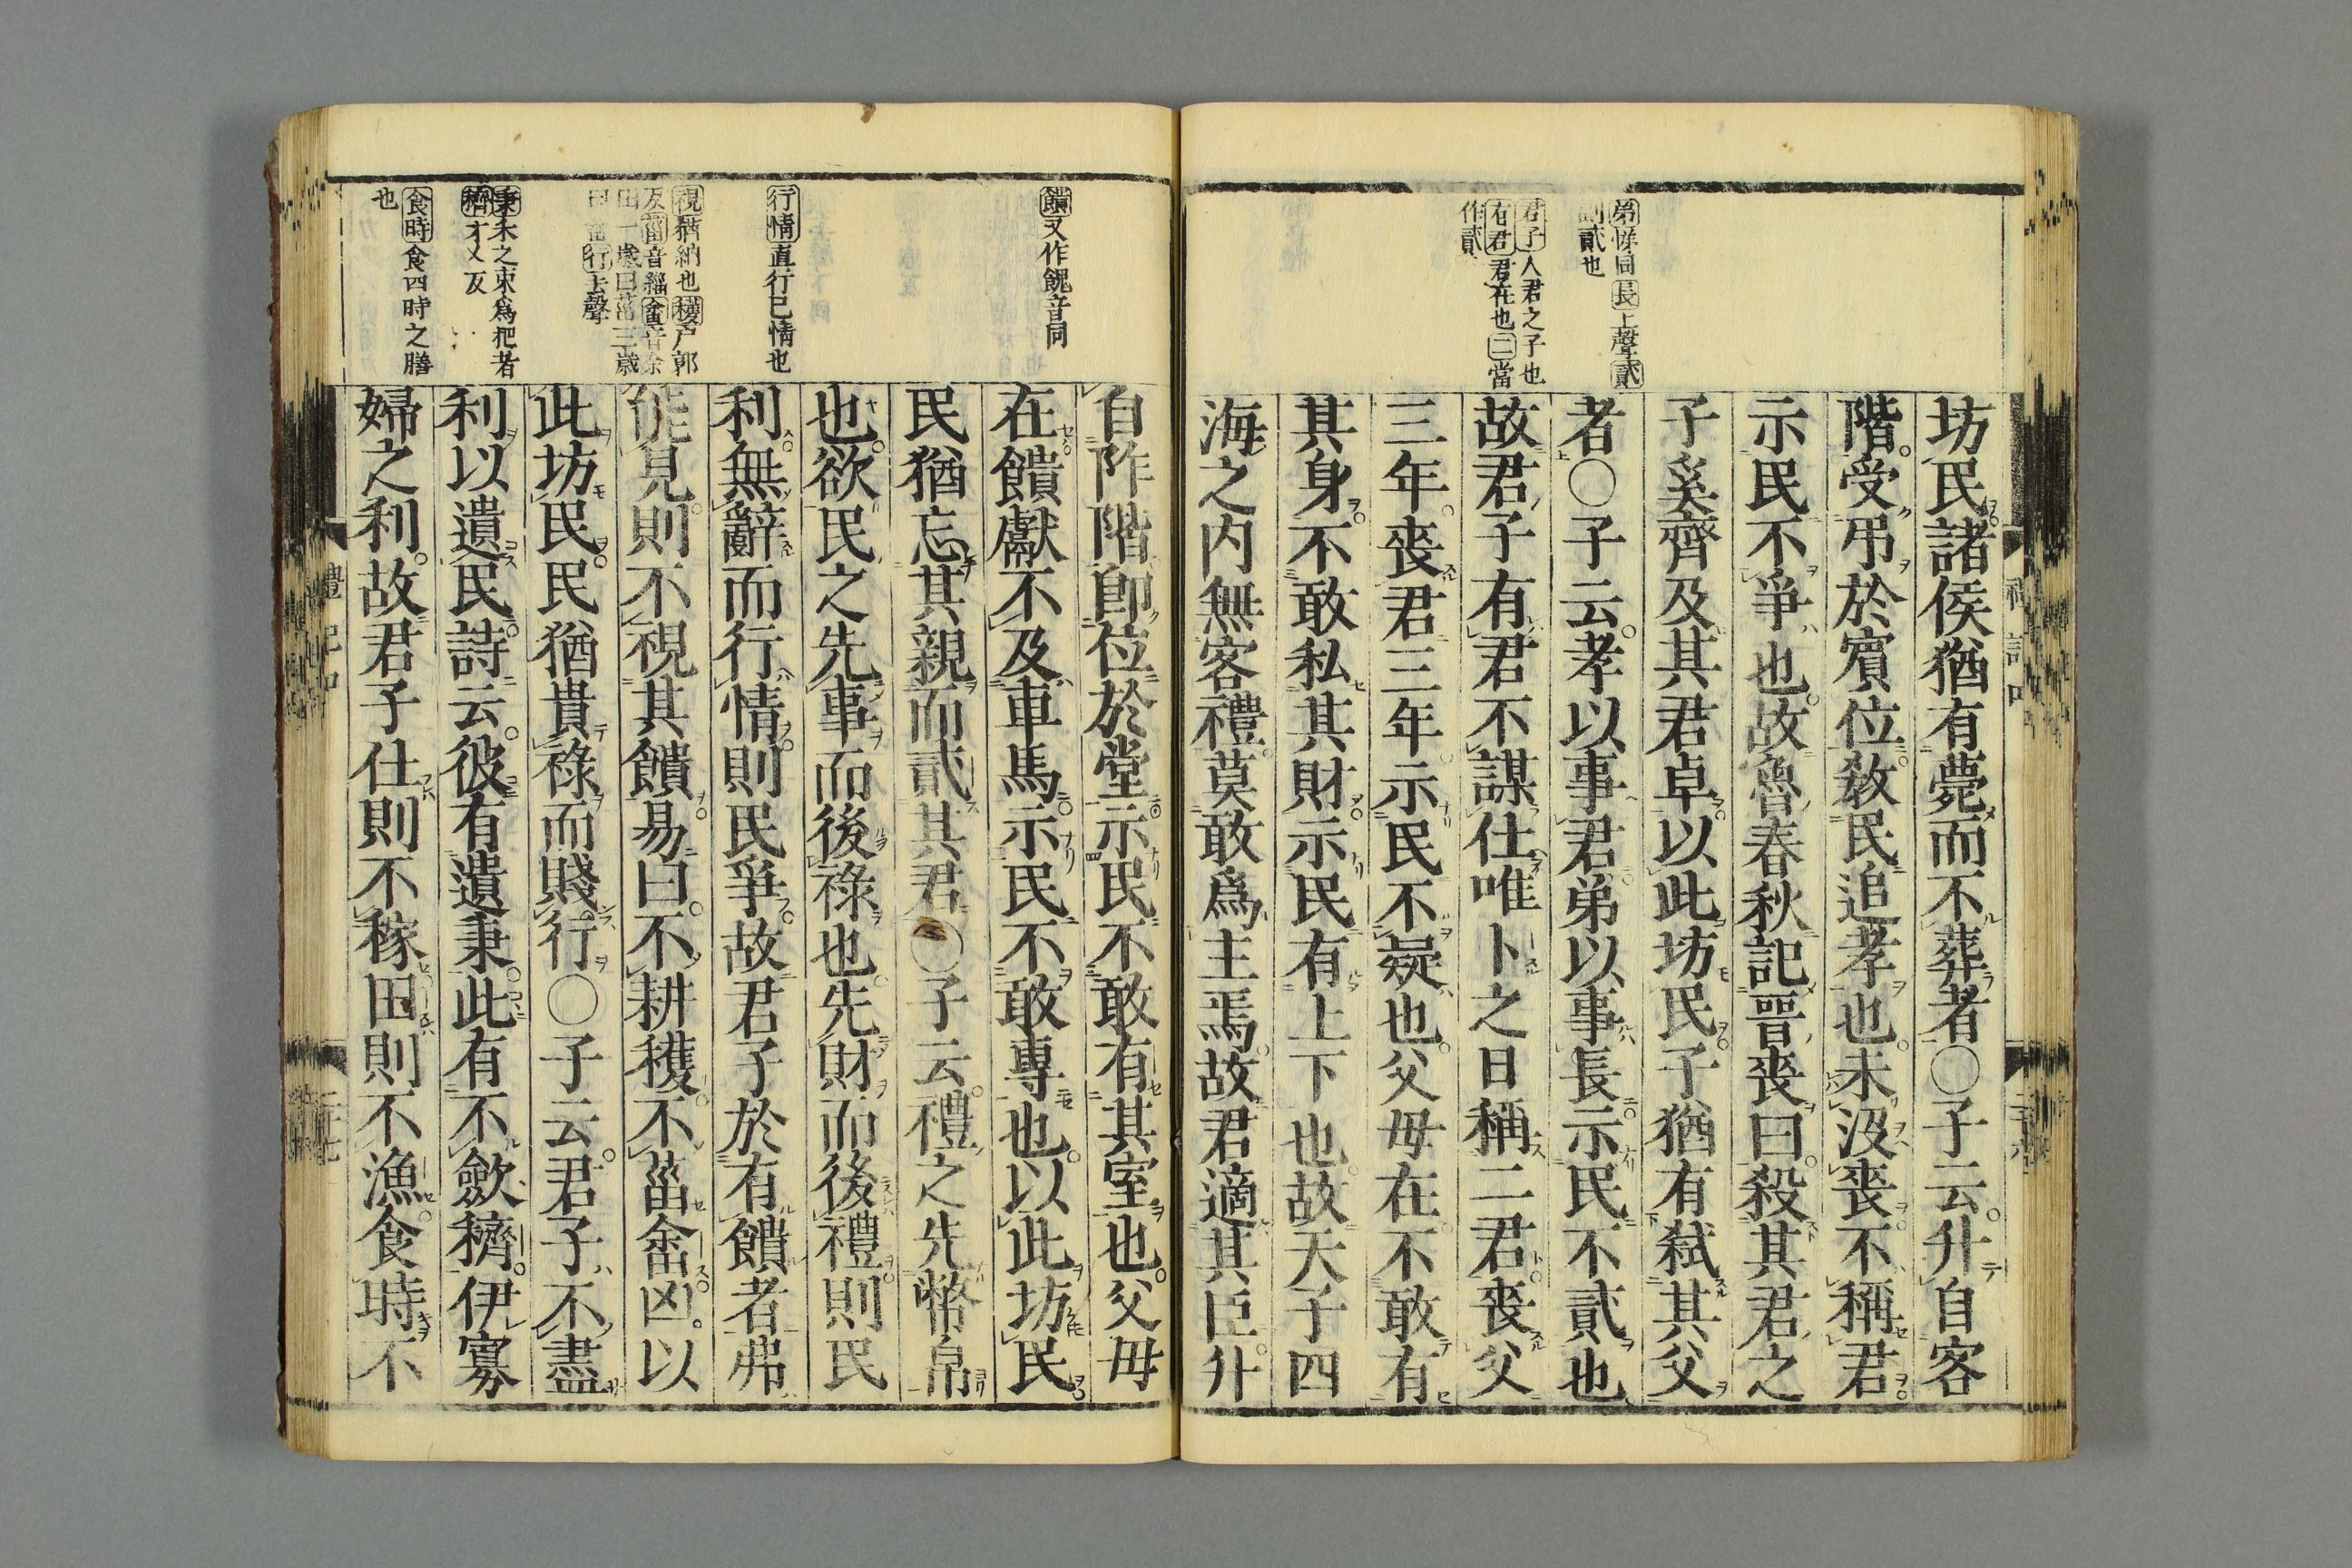 弟悌同長上聲貳
副貳也
君子人君之子也
有君君在也二當
作貳
坊民諸侯猶有薨而不葬者○子云升自客
階受弔於賓位敎民追孝也未沒喪不稱君
示民不爭也故魯春秋記晉喪曰殺其君之
子奚齊及其君卓以此坊民子猶有弑其父
者○子云孝以事君弟以事長示民不貳也
故君子有君不謀仕唯卜之日稱二君喪父
三年喪君三年示民不疑也父母在不敢有
其身不敢私其財示民有上下也故天子四
海之内無客禮莫敢爲主焉故君適其臣升
饋又作餽音同
行情直行己情也
視猶納也穫戸郭
反菑音緇畬音余
田一歳曰菑三歳
曰畬行去聲
秉禾之束爲把者
穧才乂反
食時食四時之膳
也
自阼階即位於堂示民不敢有其室也父母
在饋獻不及車馬示民不敢專也以此坊民
民猶忘其親而貳其君○子云禮之先幣帛
也欲民之先事而後祿也先財而後禮則民
利無辭而行情則民爭故君子於有饋者弗
能見則不視其饋易曰不耕穫不菑畬凶以
此坊民民猶貴祿而賤行○子云君子不盡
利以遺民詩云彼有遺秉此有不斂穧伊寡
婦之利故君子仕則不稼田則不漁食時不
禮記四